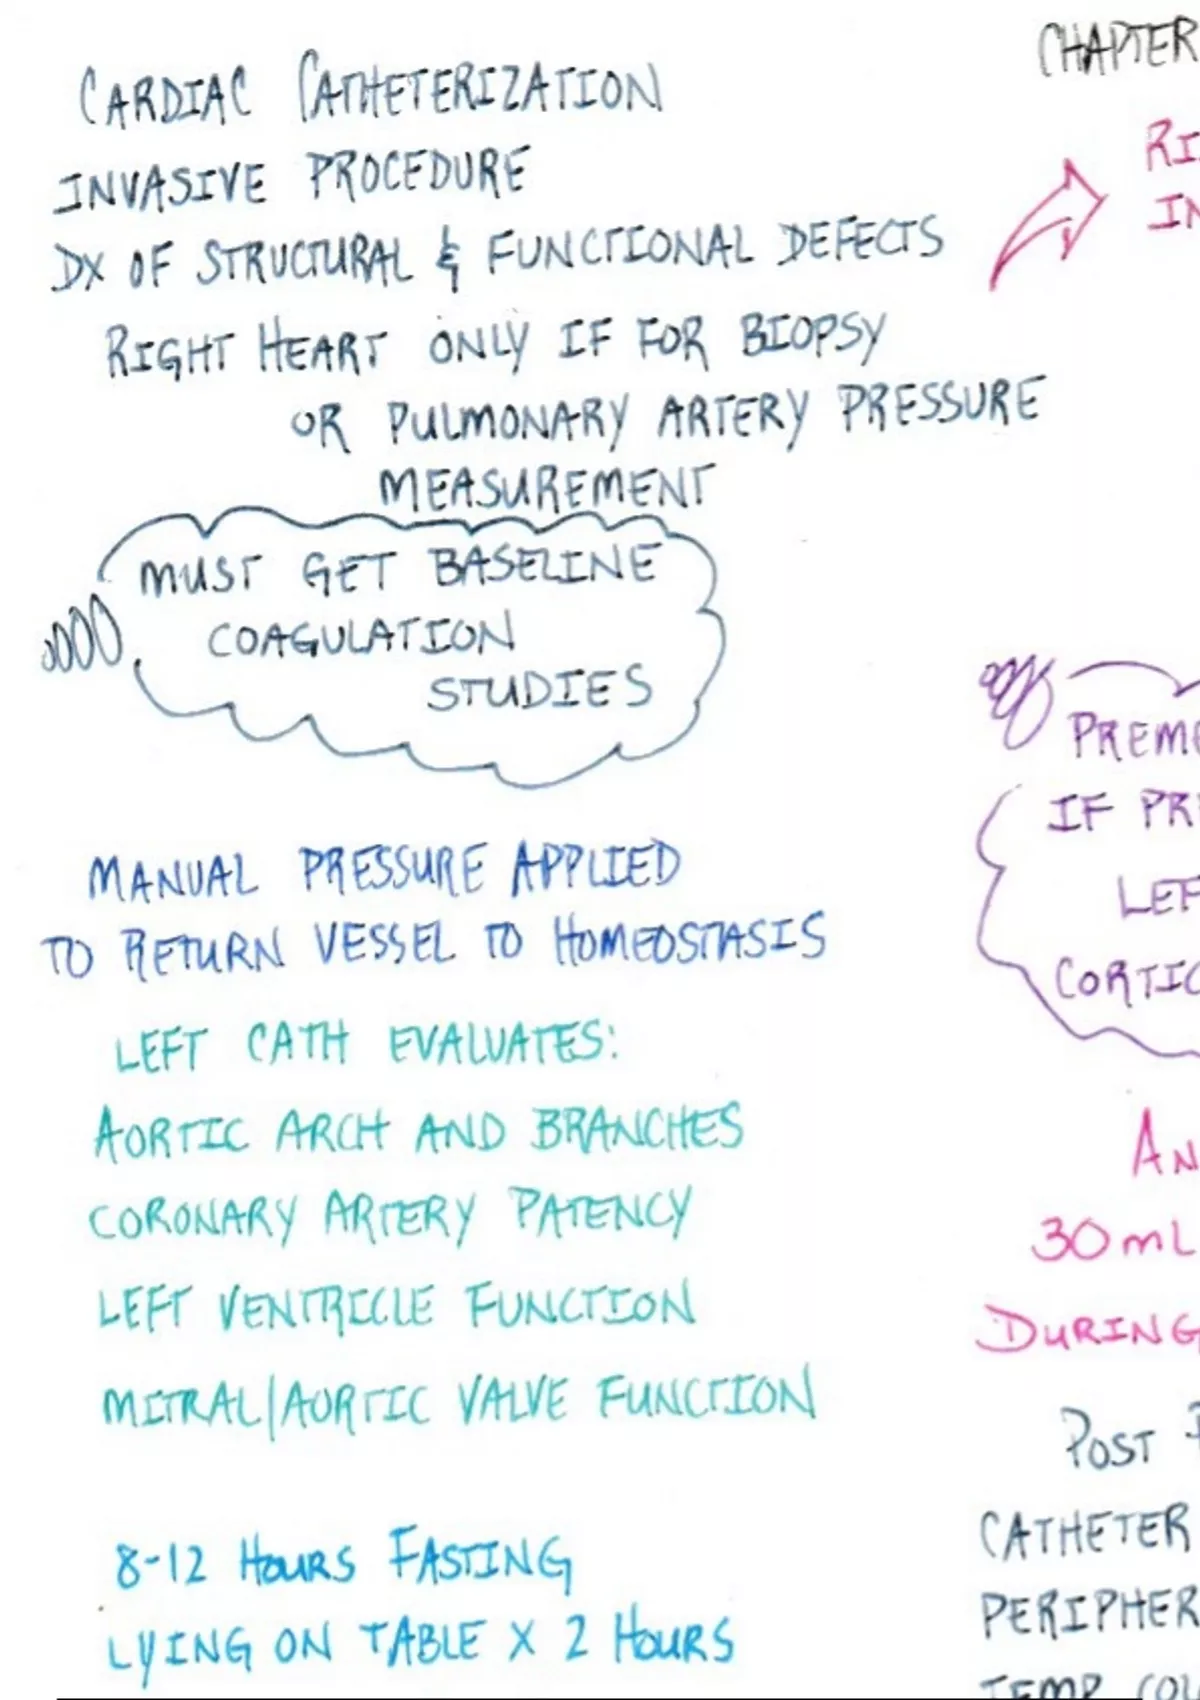 CARDIAC CATHETERIZATION
INVASIVE PROCEDURE
DX OF STRUCTURAL & FUNCTIONAL DEFECTS
RIGHT HEART ONLY IF FOR BIOPSY
OR PULMONARY ARTERY PRESSURE
MEASUREMENT
MUST GET BASELINE
COAGULATION
STUDIES
MANUAL PRESSURE APPLIED
TO RETURN VESSEL TO HOMEOSTASIS
LEFT CATH EVALUATES:
AORTIC ARCH AND BRANCHES
CORONARY ARTERY PATENCY
LEFT VENTRICLE FUNCTION
MITRAL/AORTIC VALVE FUNCTION
8-12 HOURS FASTING
LYING ON TABLE X 2 HOURS
CHAPTER
RI
IN
PREME
IF PR
LEF
CORTIC
AN
30 mL
DURING
POST
CATHETER
PERIPHER
TEMP COL